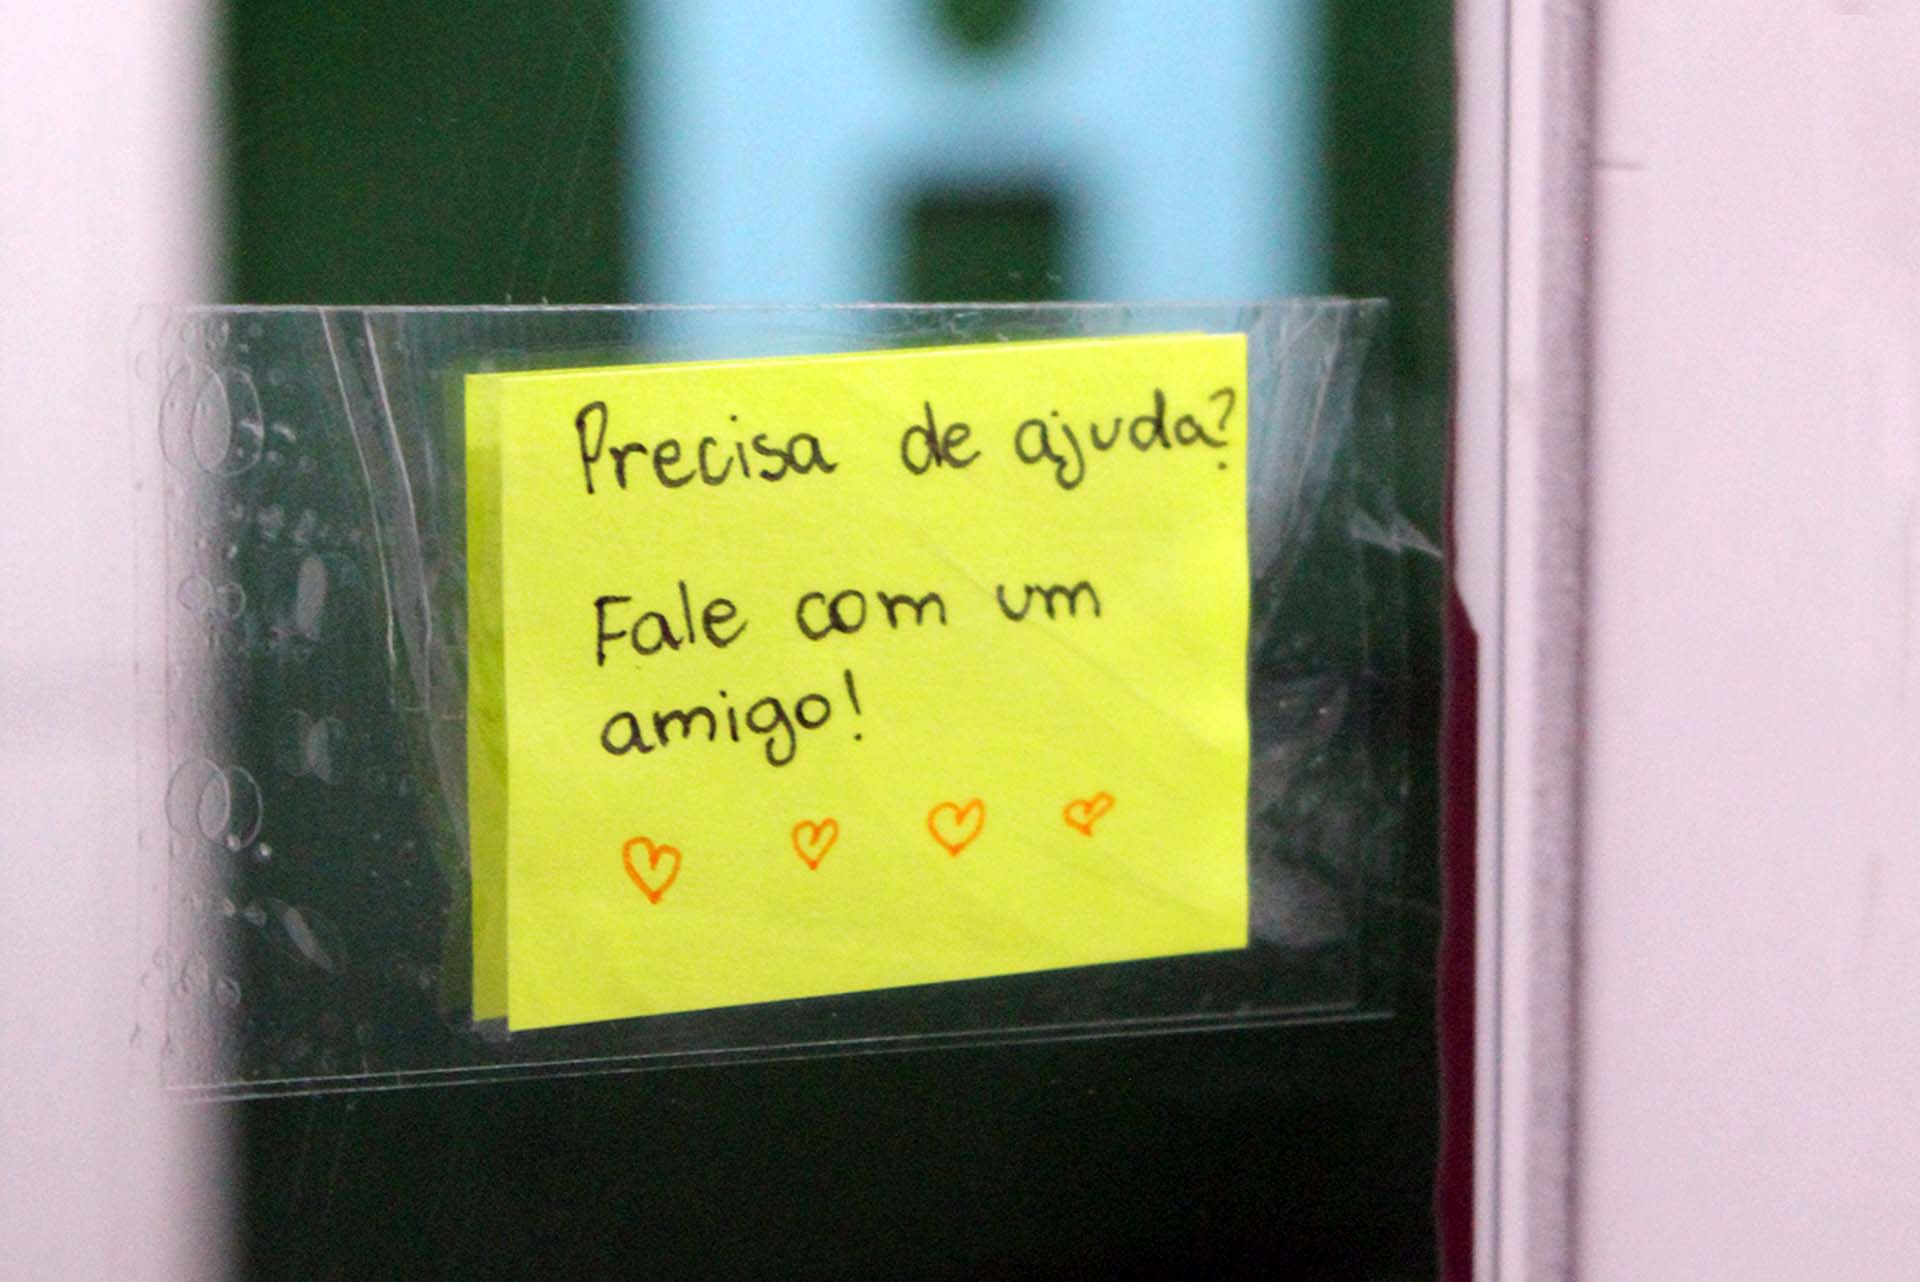 Precisa de ajuda?
Fale com um
amigo!